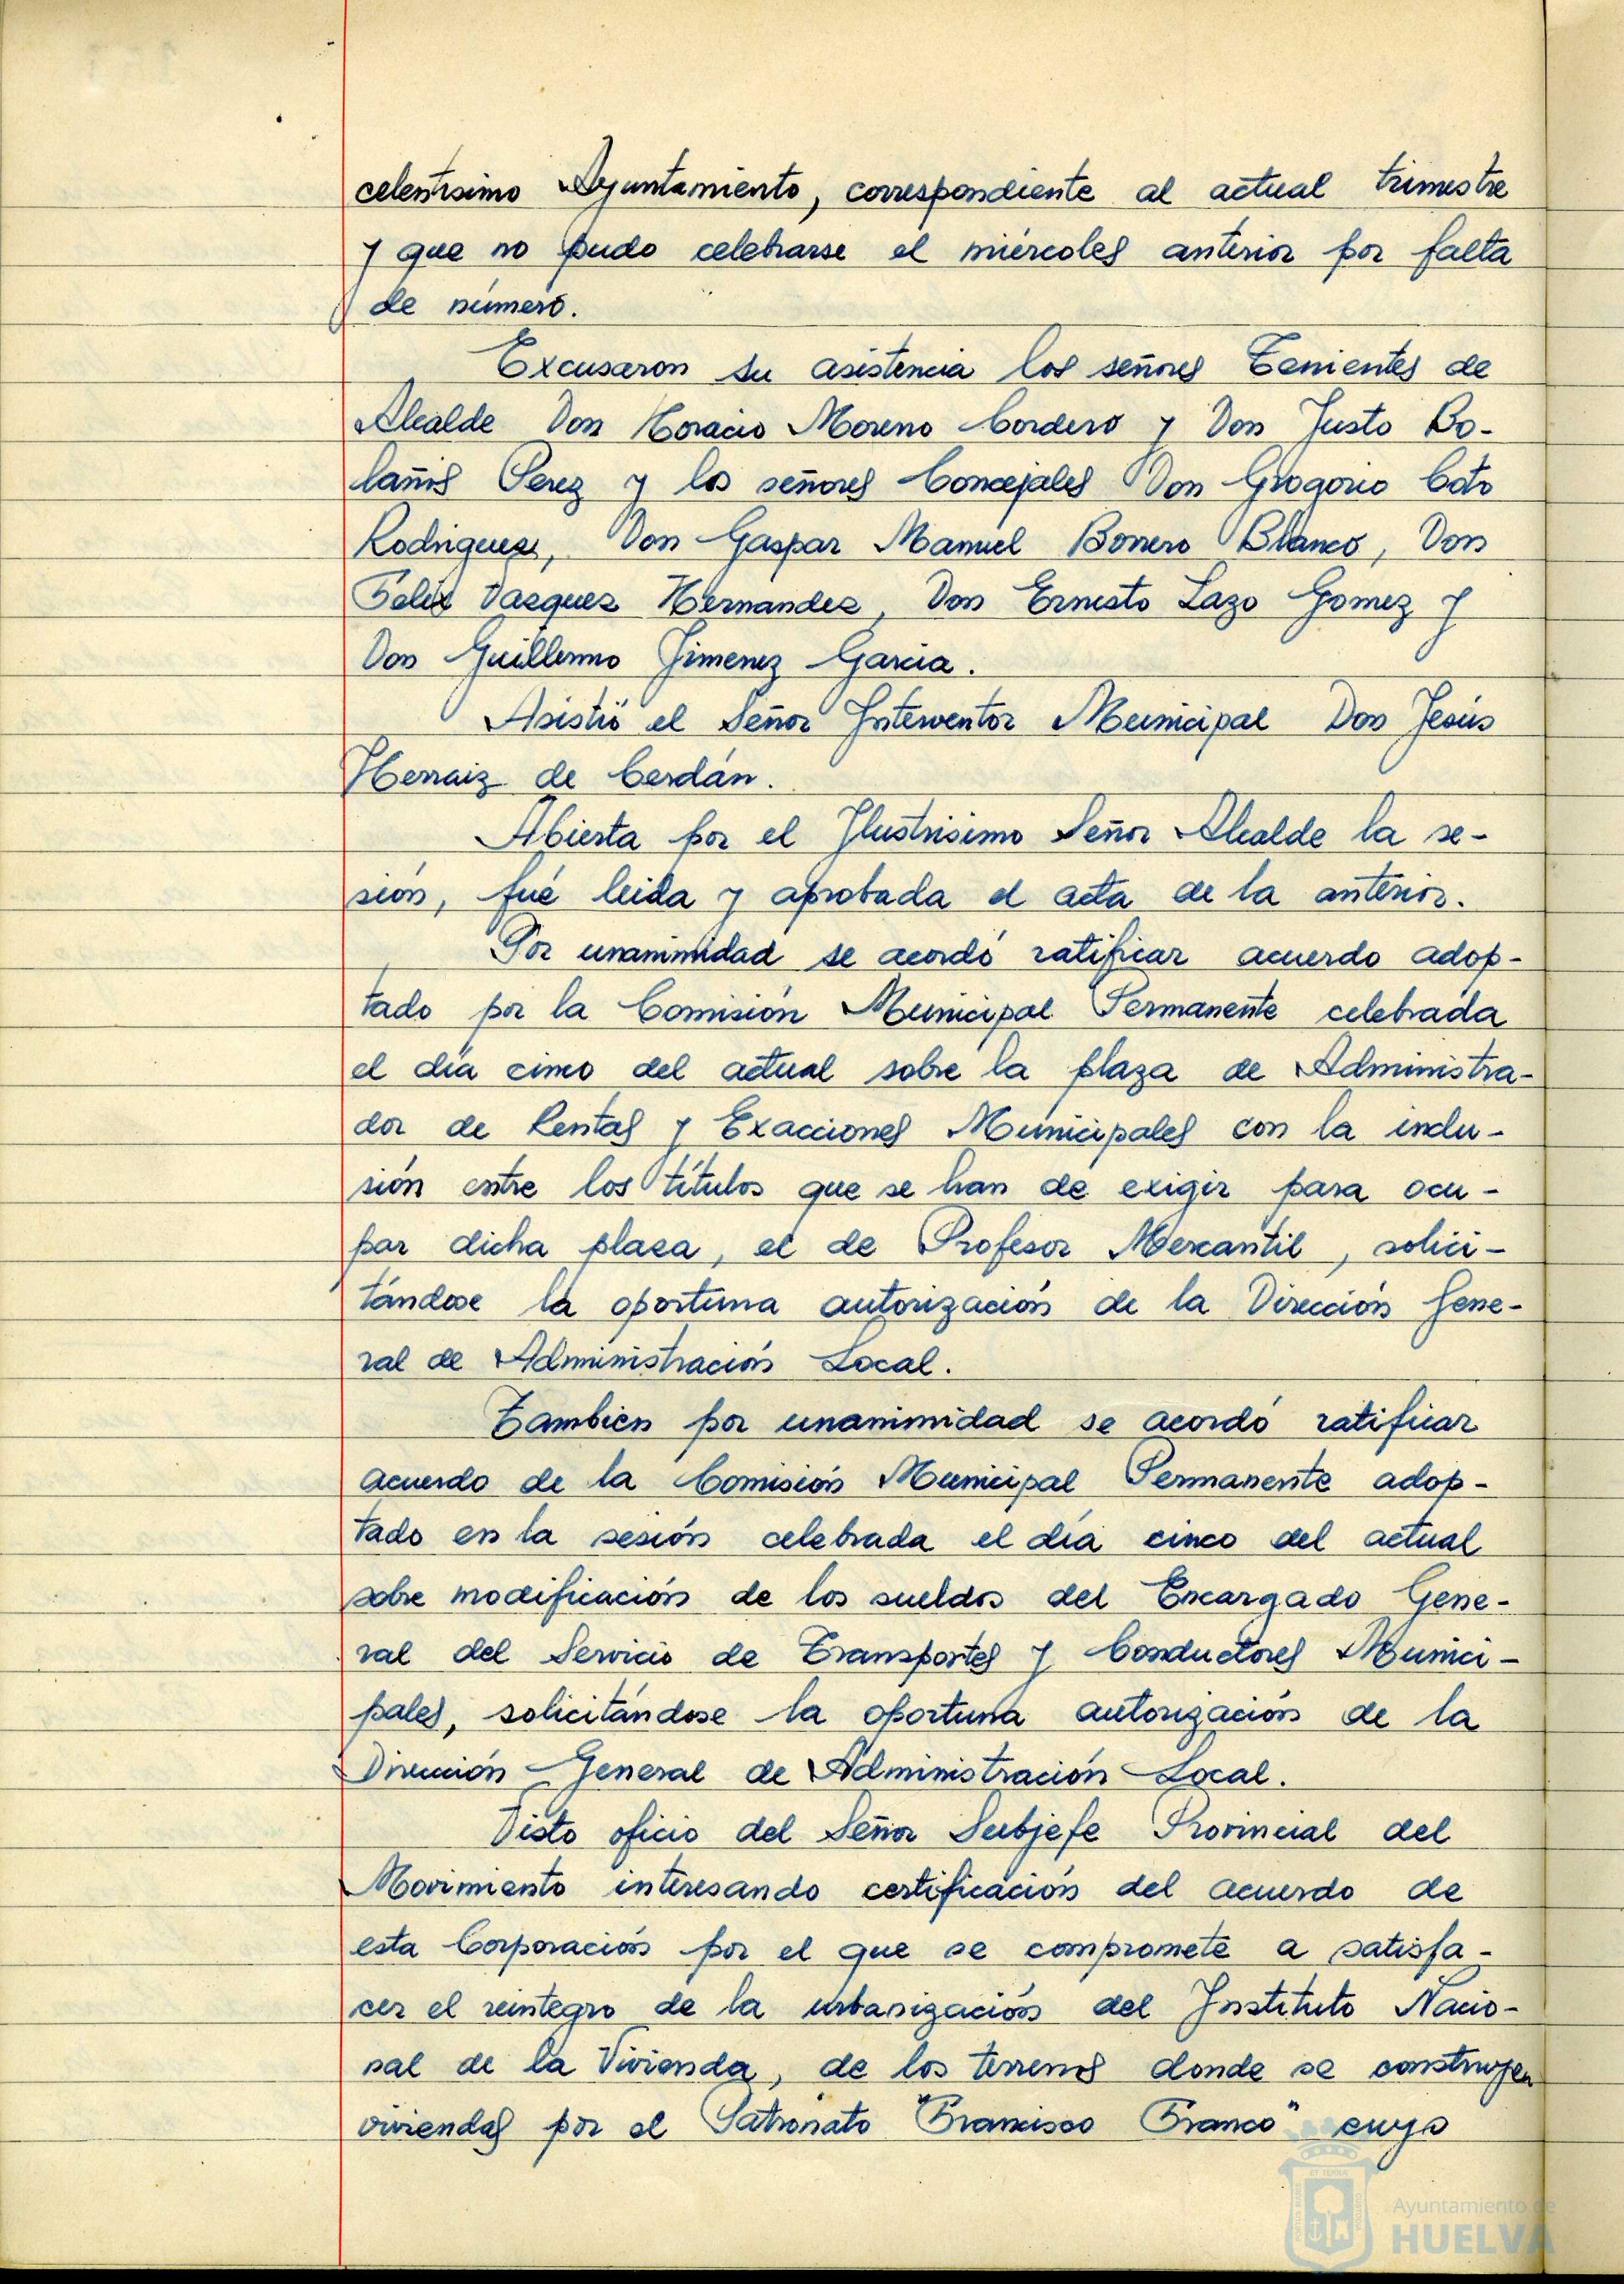 celentisimo Ayuntamiento, correspondiente al actual trimestre
y que no pudo celebrarse el miércoles anterior por falta
de número.
Excusaron su asistencia los señores Tenientes de
Alcalde Don Horacio Moreno Cordero y Don Justo Bo-
laños Perez y los señores Concejales Don Grogorio Coto
Rodriguez, Don Gaspar Manuel Bonero Blanco, Don
Felix Vazquez Hernandez, Don Ernesto Lazo Gomez y
Don Guillermo Jimenez Garcia.
Asistió el Señor Interventor Municipal Don Jesús
Herraiz de Cerdán.
Abierta por el Ilustrisimo Señor Alcalde la se-
sión, fué leida y aprobada el acta de la anterior.
Por unanimidad se acordó ratificar acuerdo adop-
tado por la Comisión Municipal Permanente celebrada
el día cinco del actual sobre la plaza de Administra-
dor de Rentas y Exacciones Municipales con la inclu-
sión entre los títulos que se han de exigir para ocu-
par dicha plaza, el de Profesor Mercantil, solici-
tándose la oportuna autorización de la Dirección Gene-
ral de Administración Local.
Tambien por unanimidad se acordó ratificar
acuerdo de la Comisión Municipal Permanente adop-
tado en la sesión celebrada el día cinco del actual
sobre modificación de los sueldos del Encargado Gene-
ral del Servicio de Transportes y Conductores Munici-
pales, solicitándose la oportuna autorización de la
Dirección General de Administración Local.
Visto oficio del Señor Subjefe Provincial del
Movimiento interesando certificación del acuerdo de
esta Corporación por el que se compromete a satisfa-
cer el reintegro de la urbanización del Instituto Nacio-
nal de la Vivienda, de los terrenos donde se construyen
viviendas por el Patronato "Francisco Franco" cuyo
Ayuntamiento de
HUELVA